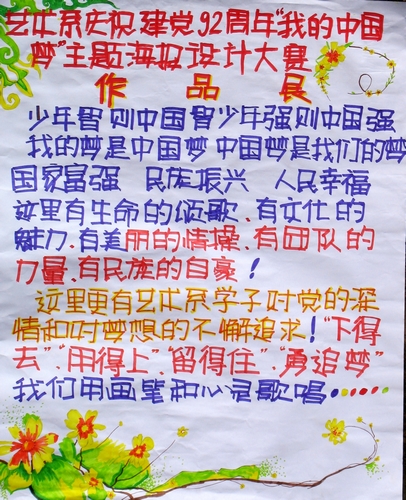 艺术系庆祝建党92周年“我的中国
梦”主题海报设计大赛
作品展
少年智则中国智少年强则中国强
我的梦是中国梦中国梦是我们的梦
国家富强 民族振兴 人民幸福
这里有生命的颂歌、有文化的
魅力、有美丽的情操、有团队的
力量、有民族的自豪！
这里更有艺术系学子对党的深
情和对梦想的不懈追求！“下得
去”、“用得上”、“留得住”、“勇追梦”
我们用画笔和心灵歌唱……